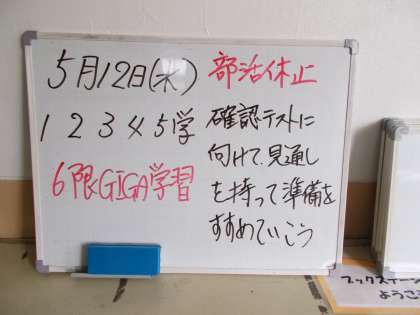 5月12日(水) 部活休止
1 2 3 4 5 学
6限GIGA学習
確認テストに
向けて、見通し
を持って準備を
すすめていこう
ブックステーシ
ようこそ